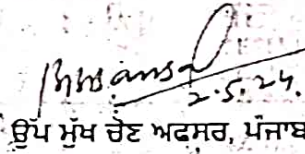 2.5.24.
ਉਪ ਮੁੱਖ ਚੋਣ ਅਫਸਰ, ਪੰਜਾਬ